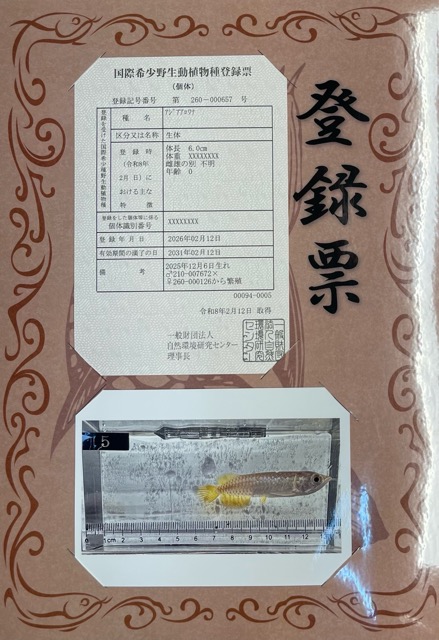 登録票
国際希少野生動植物種登録票
(個体)
登録記号番号 第 260-000657 号
登録を受けた国際希少野生動植物種
種名 アジアアロワナ
区分又は名称 生体
登録時
(令和8年
2月 日)に
おける主な
特徴
体長 6.0cm
体重 XXXXXXXX
雌雄の別 不明
年齢 0
登録をした個体等に係る
個体識別番号 XXXXXXXX
登録年月日 2026年02月12日
有効期間の満了の日 2031年02月12日
備考
2025年12月6日生れ
♂210-007672×
♀260-000126から繁殖
00094-0005
令和8年2月12日 取得
一般財団法人
自然環境研究センター
理事長
5
0 1cm 2 3 4 5 6 7 8 9 10 11 12